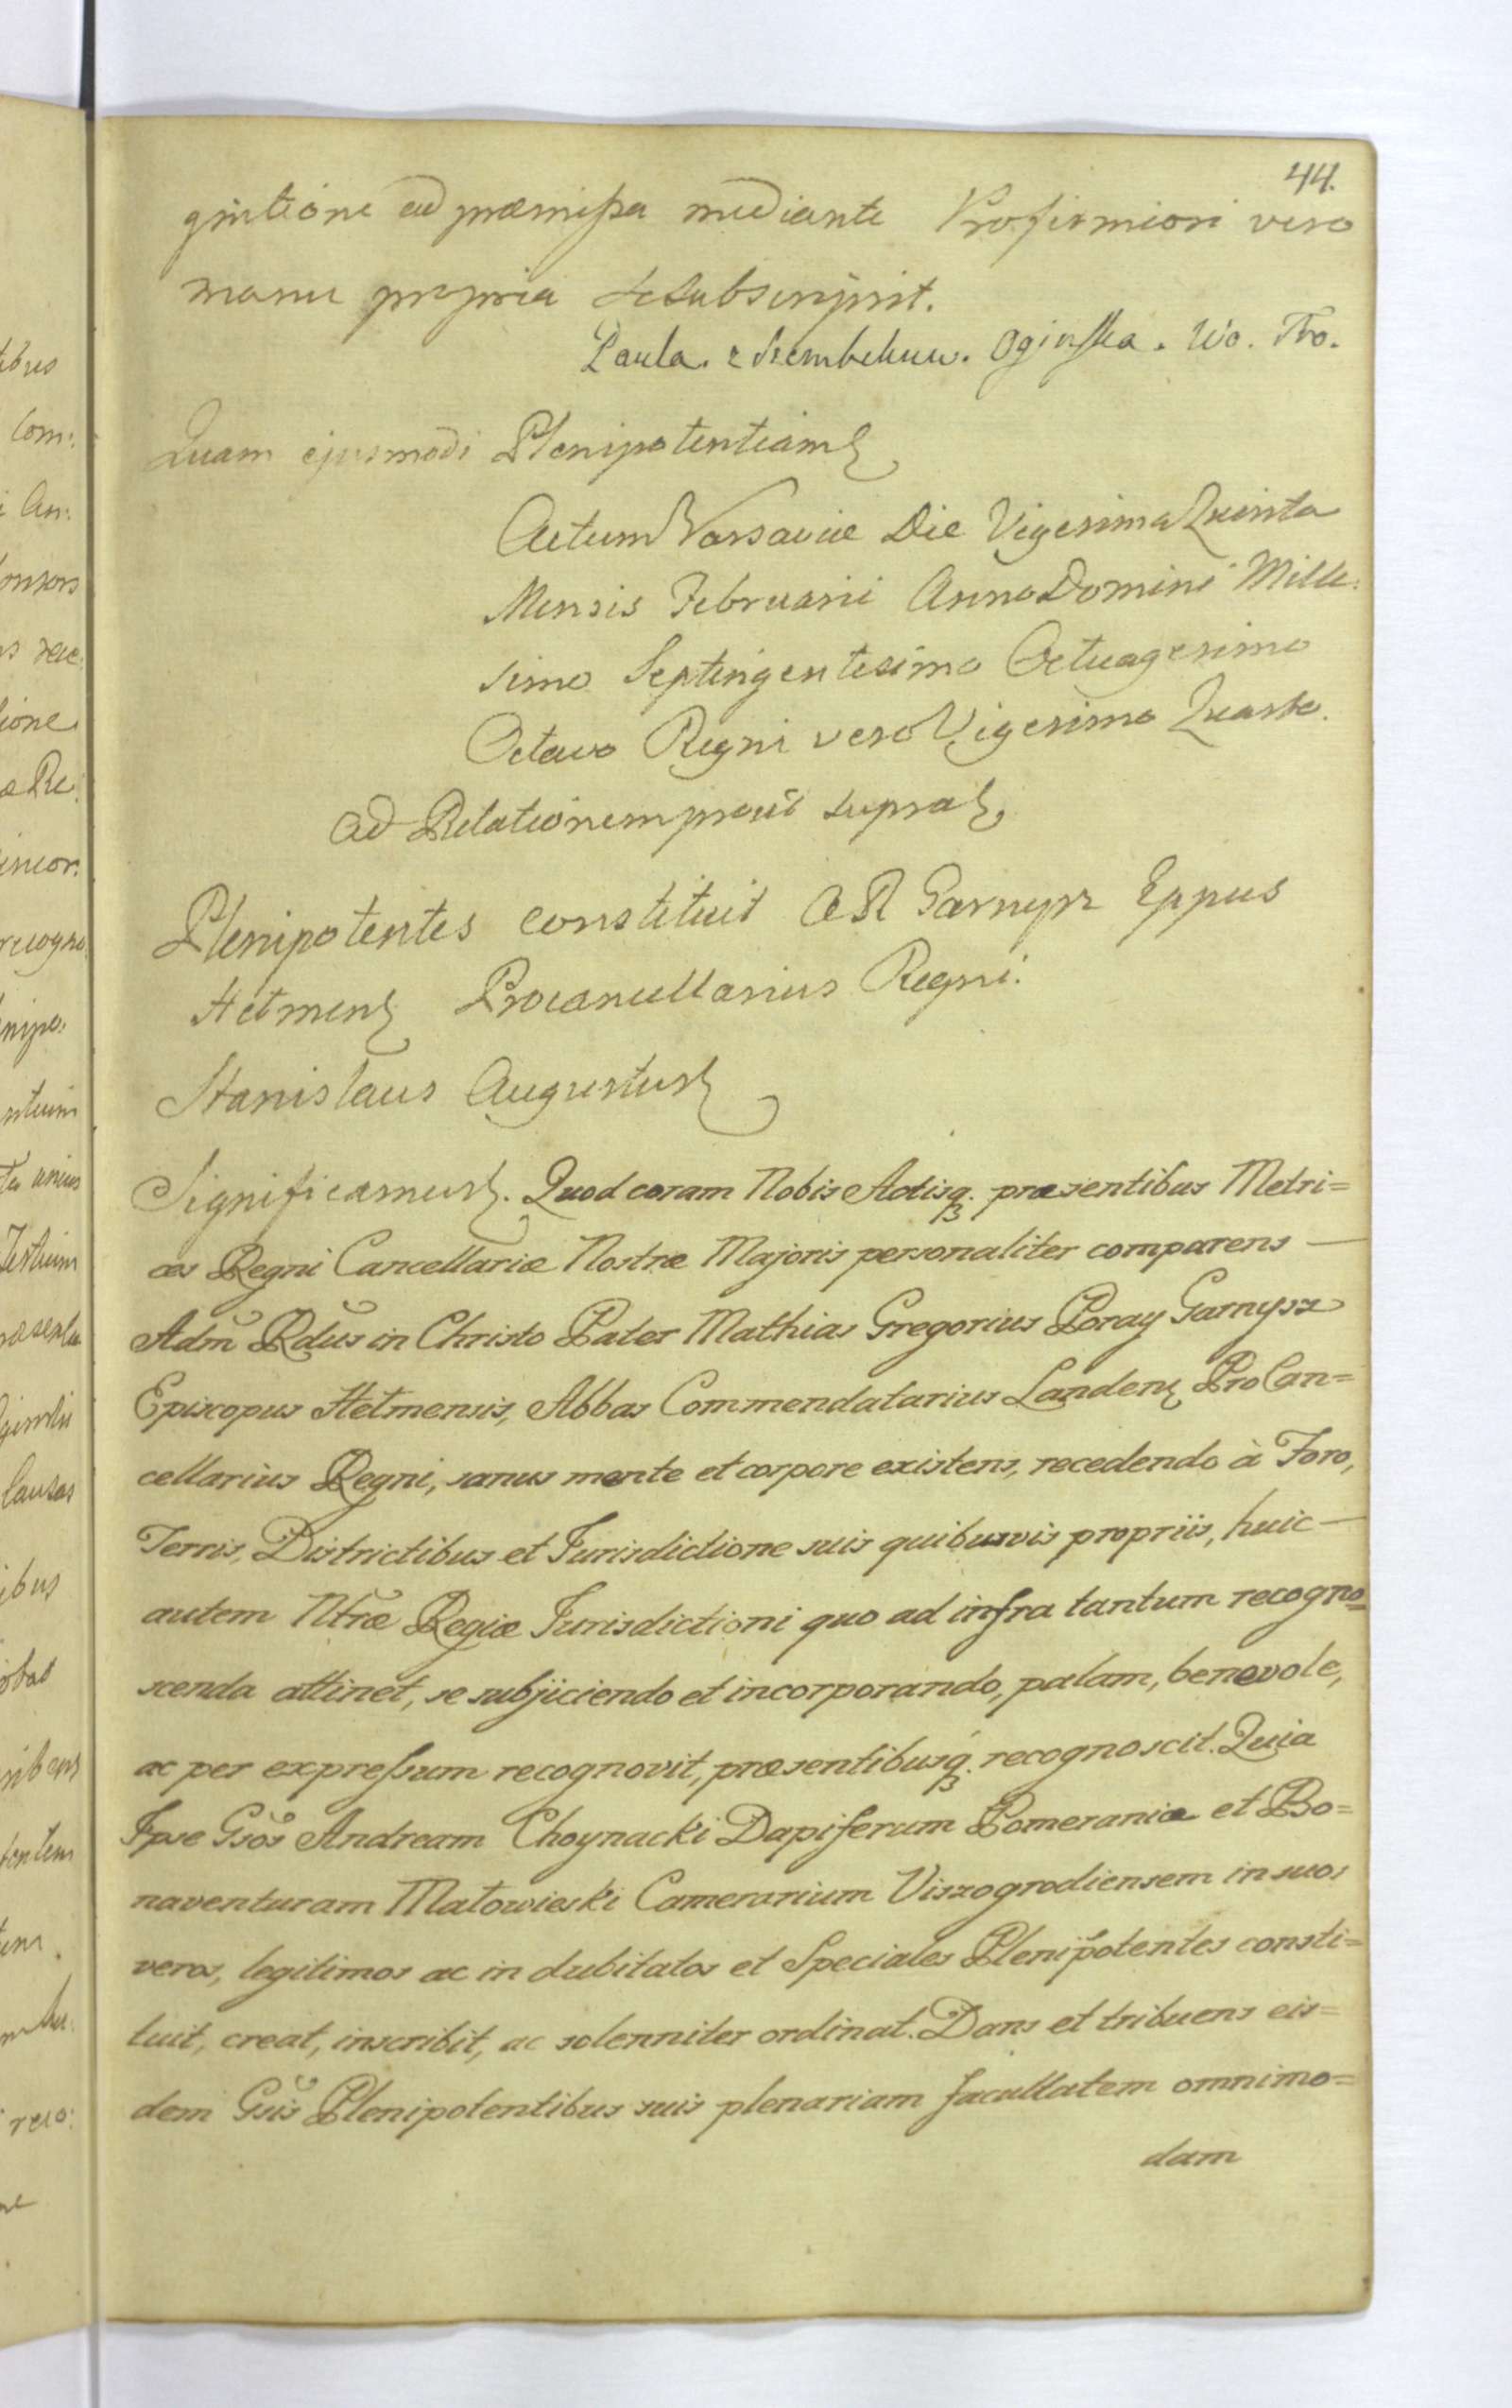 44.
gnitione ad præmissa mediante Pro firmiori vero
manu propria se subscripsit.
Paula. z Szembekuw. Oginska. Wo. Tro.
Quam ejusmodi Plenipotentiam
Actum Varsaviæ Die Vigesima Quinta
Mensis Februarii Anno Domini Mille:
simo Septingentesimo Octuagesimo
Octavo Regni vero Vigesimo Quarto.
ad Relationem prout supra
Plenipotentes constituit A R Garnysz Eppus
Hetmens Procancellarius Regni.
Stanislaus Augustus
Significamus. Quod coram Nobis Actisq. præsentibus Metri=
ces Regni Cancellariæ Nostræ Majoris personaliter comparens —
Adm̃ Rdus in Christo Pater Mathias Gregorius Poray Garnysz
Episcopus Hetmensis, Abbas Commendatarius Landens ProCan=
cellarius Regni, sanus mente et corpore existens, recedendo à Foro,
Terris, Districtibus et Jurisdictione suis quibusvis propriis, huic —
autem Ntræ Regiæ Jurisdictioni quo ad infra tantum recogno=
scenda attinet, se subjiciendo et incorporando, palam, benevole,
ac per expressum recognovit, præsentibusq. recognoscit. Quia
Ipse Gsos Andream Choynacki Dapiferum Pomeraniæ et Bo=
naventuram Małowieski Camerarium Viszogrodiensem in suos
veros, legitimos ac in dubitatos et Speciales Plenipotentes consti=
tuit, creat, inscribit, ac solenniter ordinat. Dans et tribuens eis=
dem Gsis Plenipotentibus suis plenariam facultatem omnimo=
dam